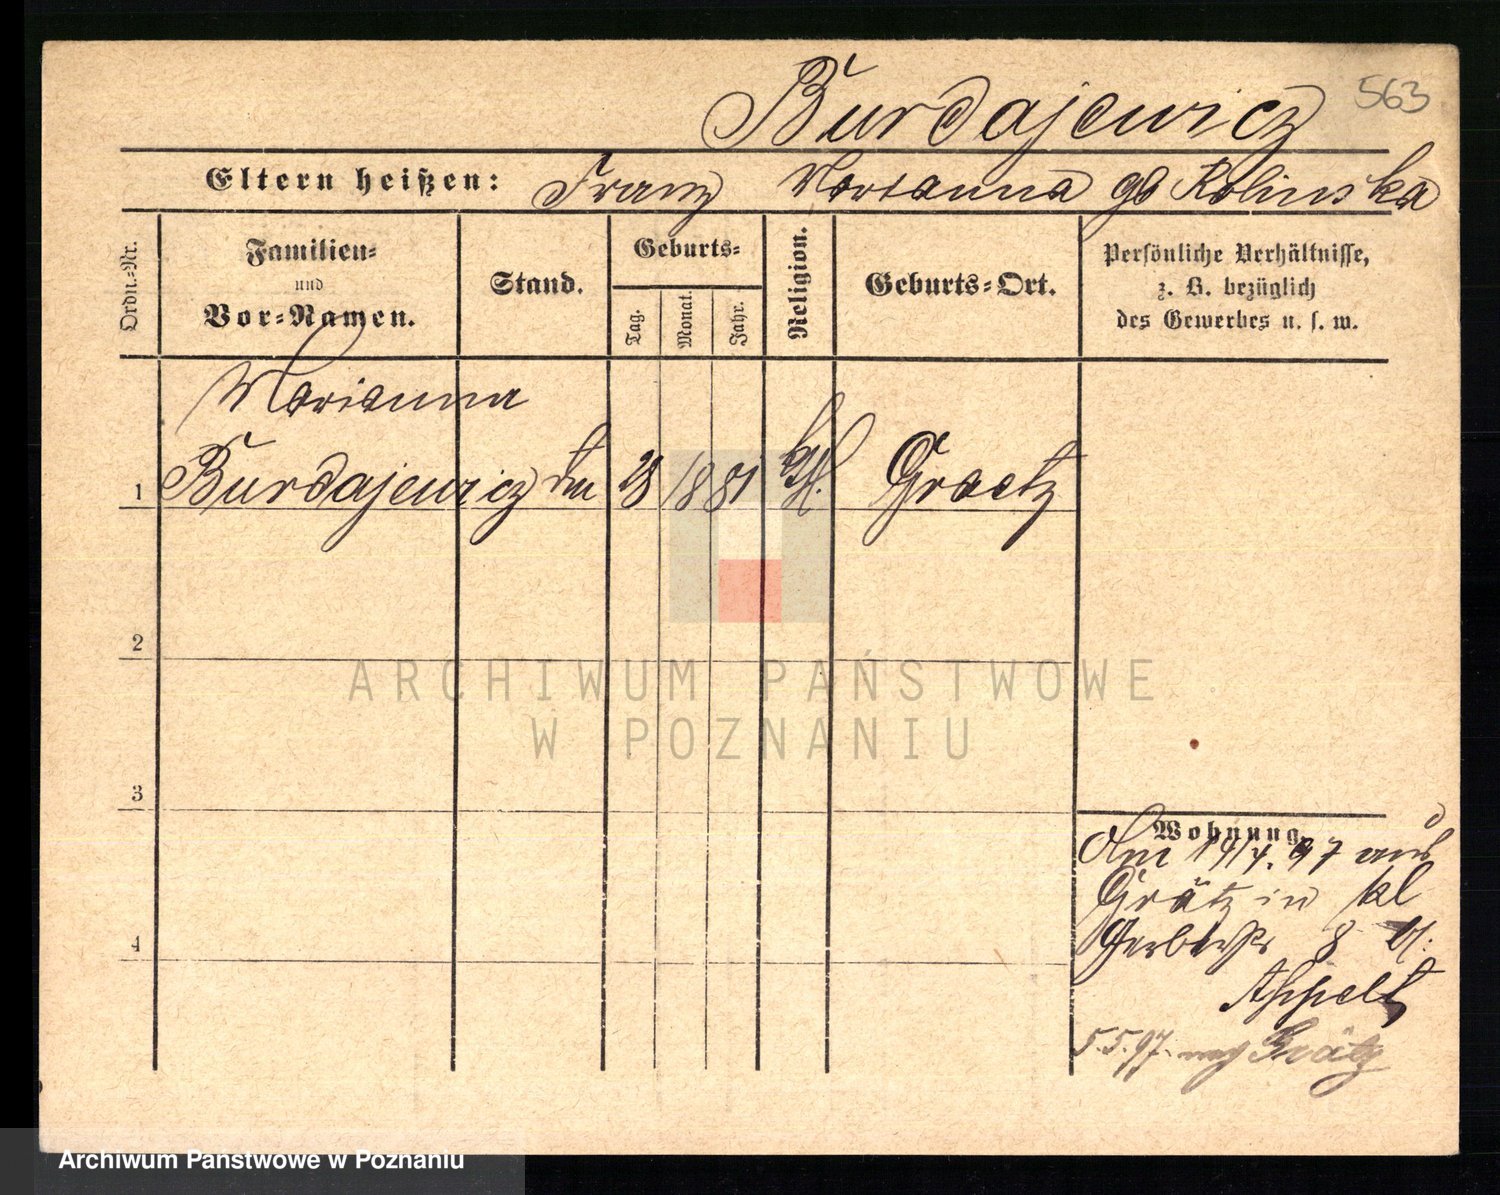 563
Burdajewicz
Eltern heißen: Franz Marianna gb Rolinska
Ordn.-Nr.
Familien-
und
Vor-Namen.
Stand.
Geburts-
Tag.
Monat.
Jahr.
Religion.
Geburts-Ort.
Persönliche Verhältnisse,
z. B. bezüglich
des Gewerbes u. s. w.
Marianna
1 Burdajewicz 28 1881 Graetz
2
ARCHIWUM PAŃSTWOWE
W POZNANIU
3
4
Wohnung.
14/4. 97 aus
Grätz in kl
Gerberstr 8
5.5.97. nach Grätz
Archiwum Państwowe w Poznaniu